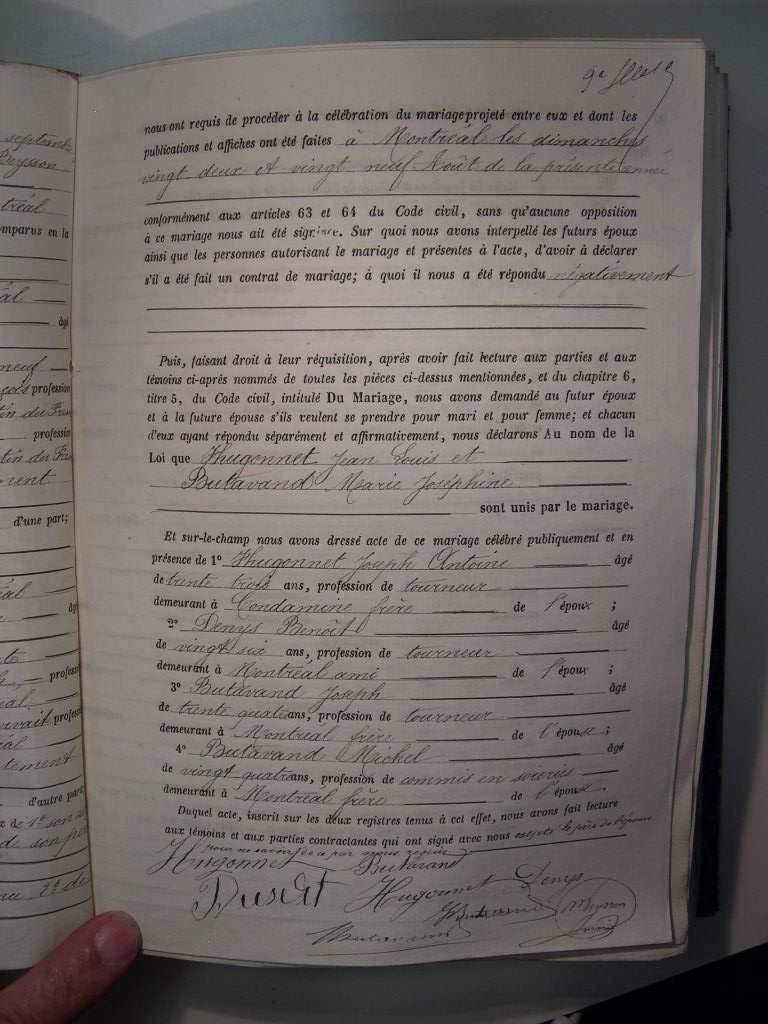 septembre
Peysson
tréal
comparus en la
al
âgé
neuf
profession
tin du
profession
tin du
d'une part;
al
âgé
profession
al
vivait profess
al
tement
d'autre part
1º son
de son
2º de
9e
nous ont requis de procéder à la célébration du mariage projeté entre eux et dont les
publications et affiches ont été faites à Montréal les dimanches
vingt deux et vingt neuf Août de la présente année
conformément aux articles 63 et 64 du Code civil, sans qu'aucune opposition
à ce mariage nous ait été signifiée. Sur quoi nous avons interpellé les futurs époux
ainsi que les personnes autorisant le mariage et présentes à l'acte, d'avoir à déclarer
s'il a été fait un contrat de mariage; à quoi il nous a été répondu négativement
Puis, faisant droit à leur réquisition, après avoir fait lecture aux parties et aux
témoins ci-après nommés de toutes les pièces ci-dessus mentionnées, et du chapitre 6,
titre 5, du Code civil, intitulé Du Mariage, nous avons demandé au futur époux
et à la future épouse s'ils veulent se prendre pour mari et pour femme; et chacun
d'eux ayant répondu séparément et affirmativement, nous déclarons Au nom de la
Loi que Hugonnet Jean Louis et
Butavand Marie Joséphine
sont unis par le mariage.
Et sur-le-champ nous avons dressé acte de ce mariage célébré publiquement et en
présence de 1º Hugonnet Joseph Antoine âgé
de trente trois ans, profession de tourneur
demeurant à Condamine frère de l'époux;
2º Denys Benoît âgé
de vingt six ans, profession de tourneur
demeurant à Montréal ami de l'époux;
3º Butavand Joseph âgé
de trente quatre ans, profession de tourneur
demeurant à Montréal frère de l'épouse;
4º Butavand Michel âgé
de vingt quatre ans, profession de commis en soieries
demeurant à Montréal frère de l'épouse
Duquel acte, inscrit sur les deux registres tenus à cet effet, nous avons fait lecture
aux témoins et aux parties contractantes qui ont signé avec nous excepté le père de l'épouse
pour ne savoir de ce par nous requis
Hugonnet Butavand
Dusert Hugonnet Denys
Butavand
Butavand